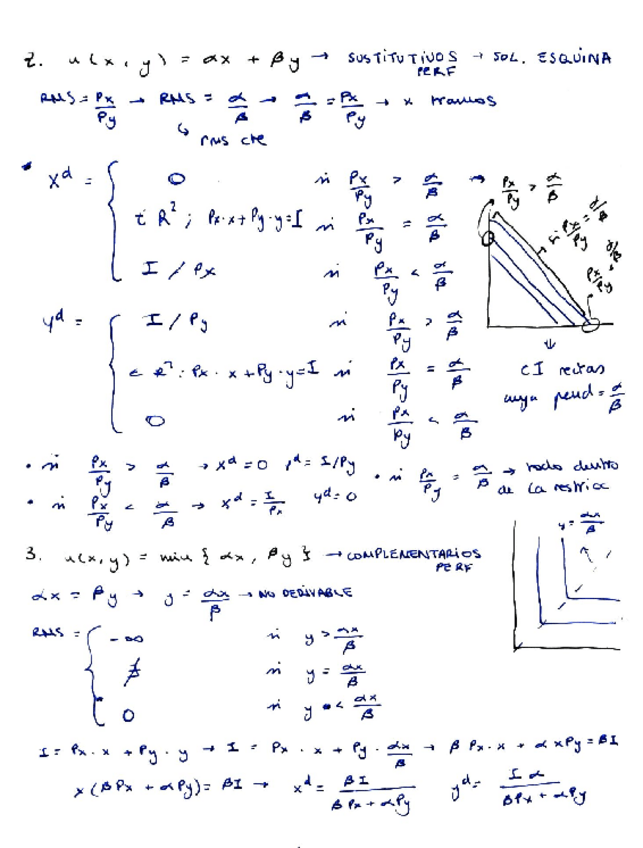 2. u(x, y) = αx + βy → SUSTITUTIVOS PERF → SOL. ESQUINA
RMS = Px/Py → RMS = α/β → α/β = Px/Py → x tramos
↳ rms cte
• x^d = { 0 si Px/Py > α/β → Px/Py > α/β
∈ R²; Px·x + Py·y = I si Px/Py = α/β
si Px/Py = α/β
I / Px si Px/Py < α/β
Px/Py < α/β
y^d = { I / Py si Px/Py > α/β
∈ R²: Px·x + Py·y = I si Px/Py = α/β
0 si Px/Py < α/β
⇓
CI rectas
cuya pend = α/β
• si Px/Py > α/β → x^d = 0 y^d = I/Py
• si Px/Py = α/β → todo dentro de la restricc
• si Px/Py < α/β → x^d = I/Px y^d = 0
3. u(x, y) = min { αx, βy } → COMPLEMENTARIOS PERF
y = αx/β
αx = βy → y = αx/β → NO DERIVABLE
RMS = { -∞ si y > αx/β
∄ si y = αx/β
0 si y < αx/β
I = Px·x + Py·y → I = Px·x + Py·αx/β → βPx·x + αxPy = βI
x(βPx + αPy) = βI → x^d = βI/(βPx + αPy) y^d = Iα/(βPx + αPy)